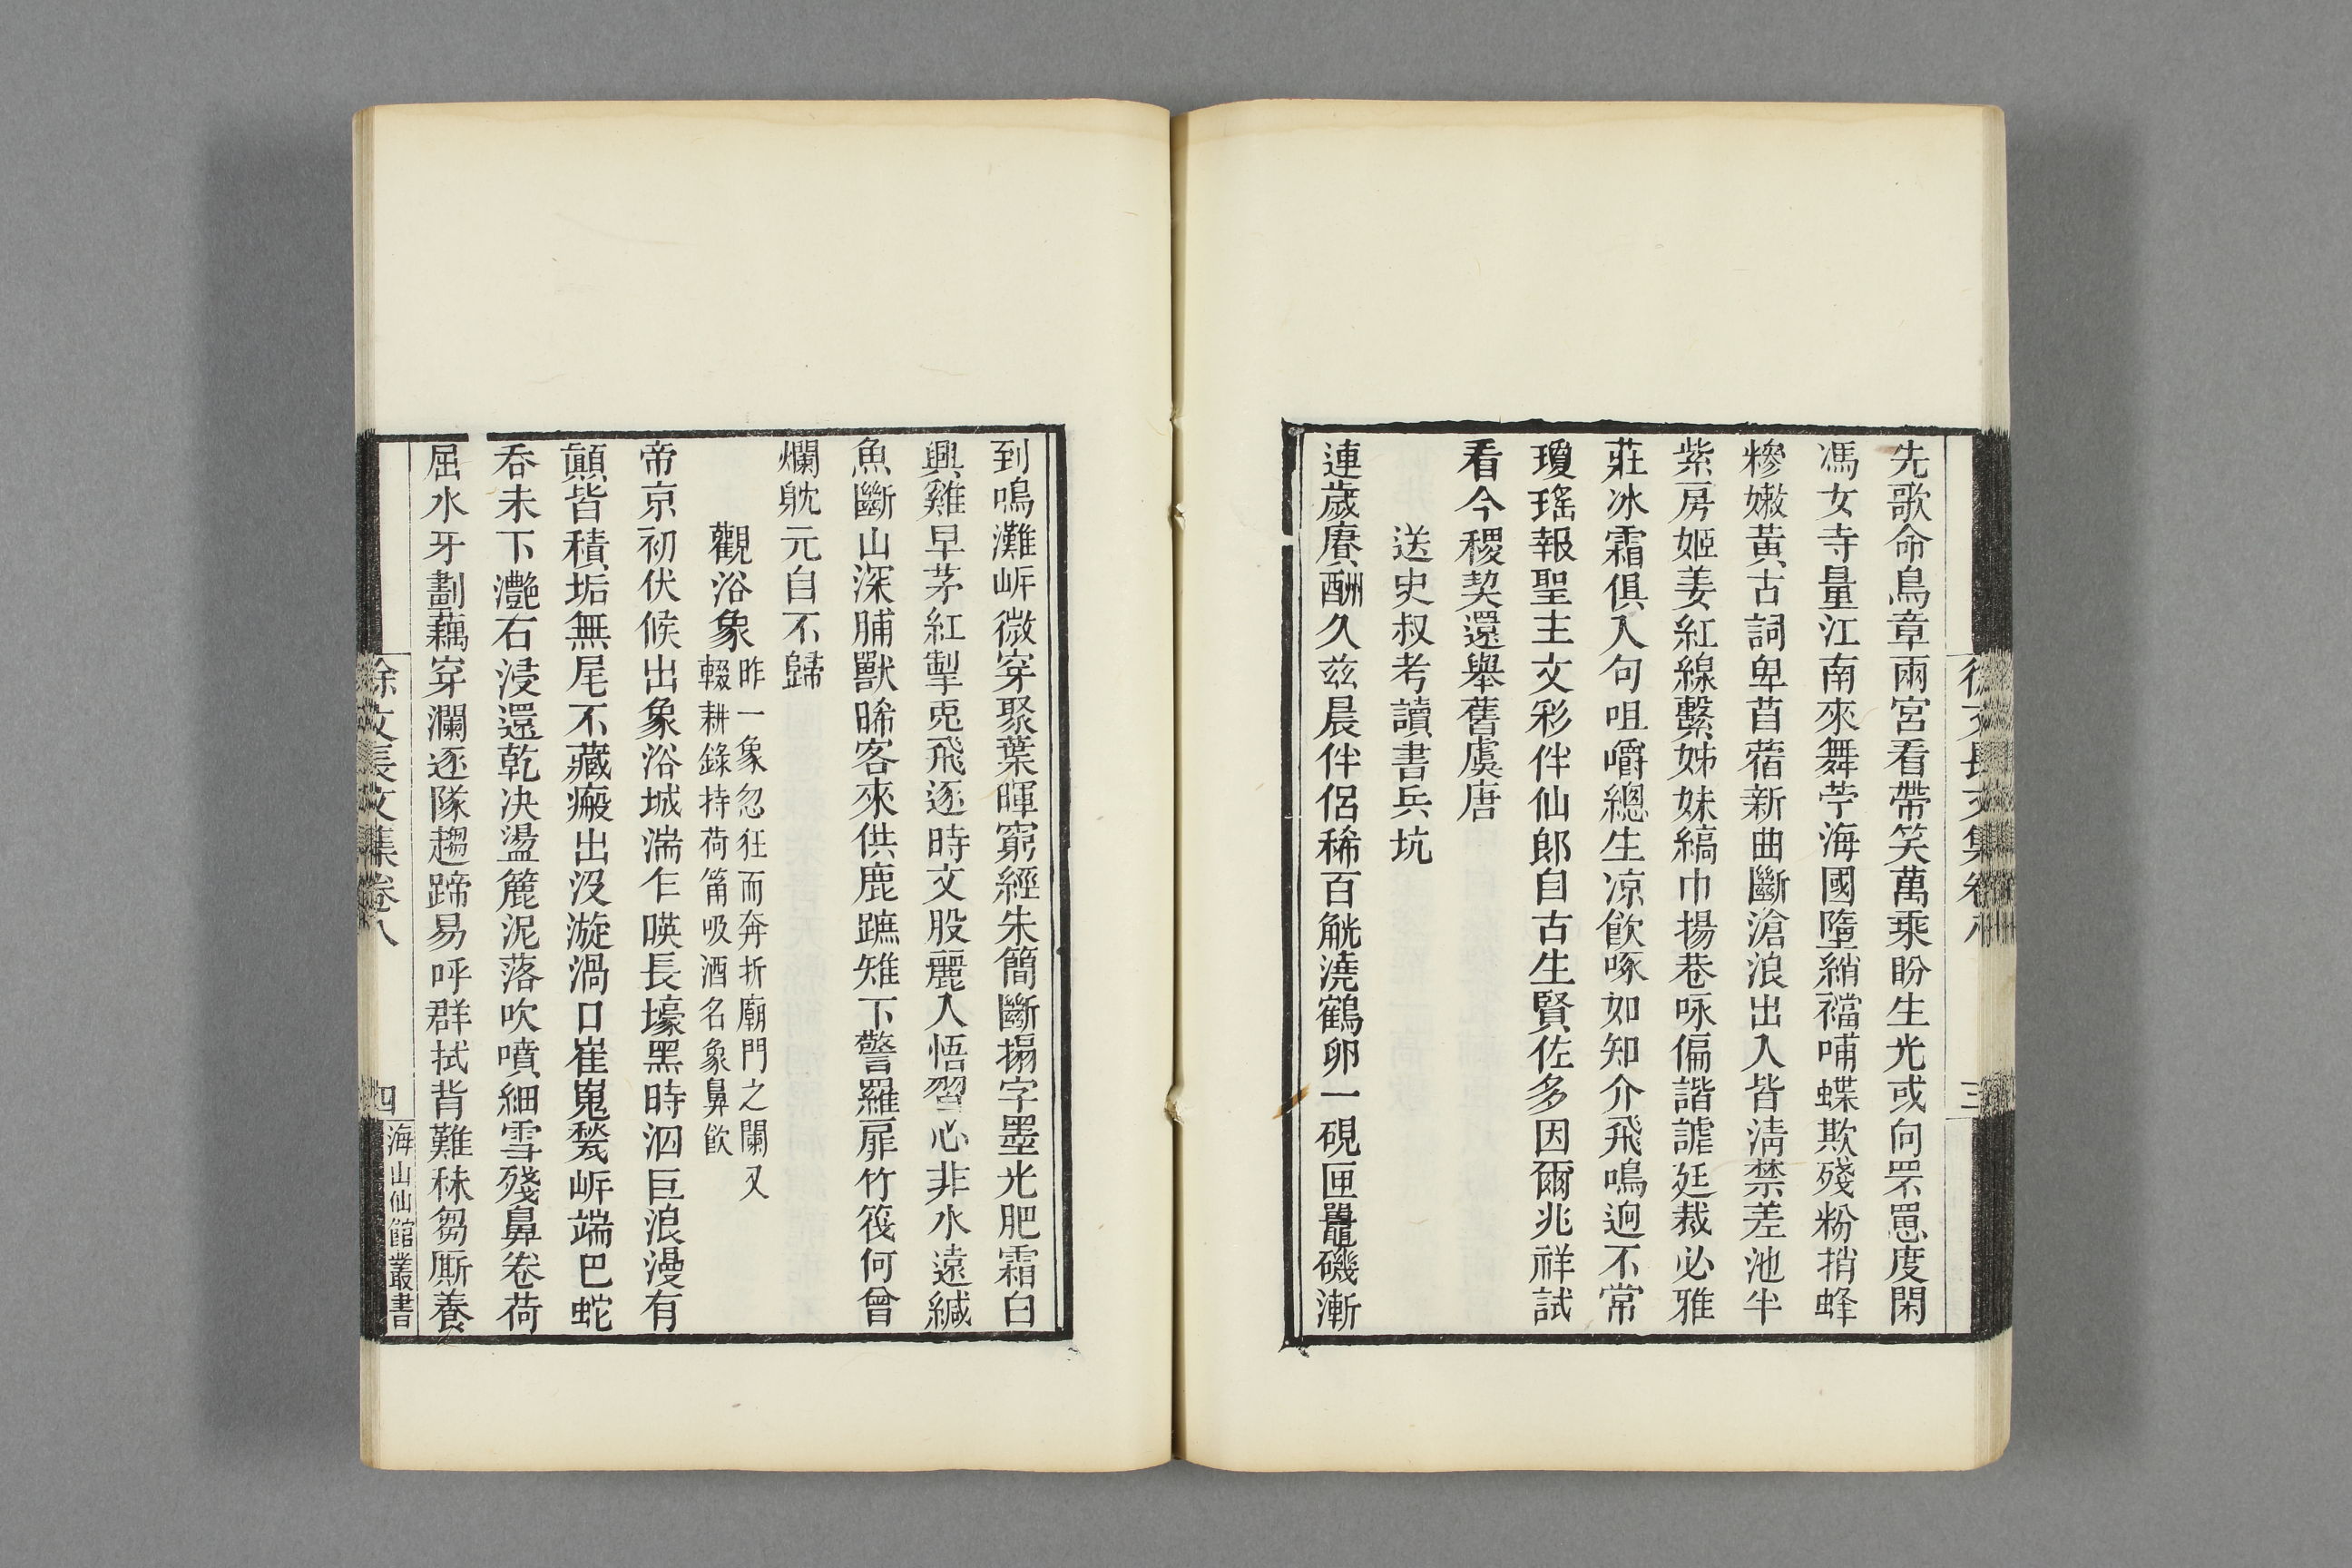 先歌命鳥章兩宮看帶笑萬乘盼生光或向罘罳度閑
馮女寺量江南來舞苧海國墮綃襠哺蝶欺殘粉捎蜂
糝嫩黃古詞卑苜蓿新曲斷滄浪出入皆淸禁差池半
紫房姬姜紅線繫姊妹縞巾揚巷咏偏諧謔廷裁必雅
莊冰霜俱入句咀嚼總生凉飲啄如知介飛鳴迥不常
瓊瑤報聖主文彩伴仙郎自古生賢佐多因爾兆祥試
看今稷契還舉舊虞唐
送史叔考讀書兵坑
連歲賡酬久茲晨伴侶稀百觥澆鶴卵一硯匣鼉磯漸
徐文長文集卷八
三
到鳴灘㟁微穿聚葉暉窮經朱簡斷搨字墨光肥霜白
興雞早茅紅掣兎飛逐時文股麗入悟習心非水遠緘
魚斷山深脯獸晞客來供鹿蹠雉下警羅扉竹筏何曾
爛躭元自不歸
觀浴象昨一象忽狂而奔折廟門之闌又
輟耕錄持荷筩吸酒名象鼻飮
帝京初伏候出象浴城湍乍暎長壕黑時泅巨浪漫有
顚皆積垢無尾不藏瘢出沒漩渦口崔嵬甃㟁端巴蛇
呑未下灧石浸還乾决盪簏泥落吹噴細雪殘鼻卷荷
屈水牙劃藕穿瀾逐隊趨蹄易呼群拭背難秣芻厮養
徐文長文集卷八
四
海山仙館叢書